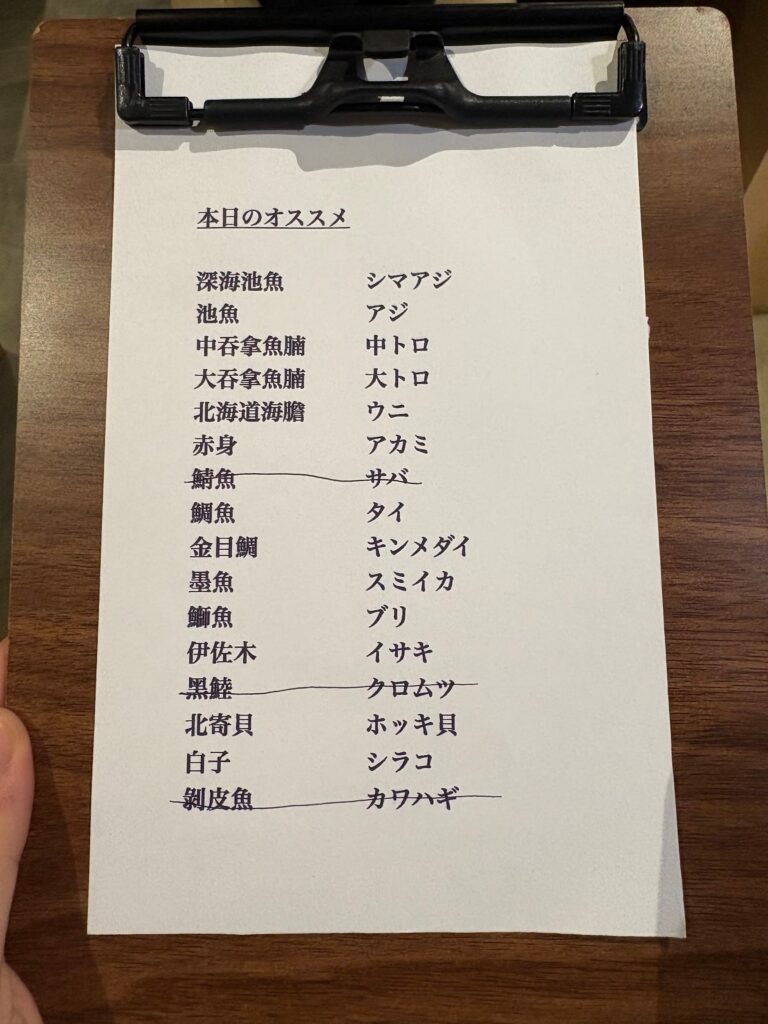 本日のオススメ
深海池魚 シマアジ
池魚 アジ
中吞拿魚腩 中トロ
大吞拿魚腩 大トロ
北海道海膽 ウニ
赤身 アカミ
鯖魚 サバ
鯛魚 タイ
金目鯛 キンメダイ
墨魚 スミイカ
鰤魚 ブリ
伊佐木 イサキ
黑鯥 クロムツ
北寄貝 ホッキ貝
白子 シラコ
剝皮魚 カワハギ